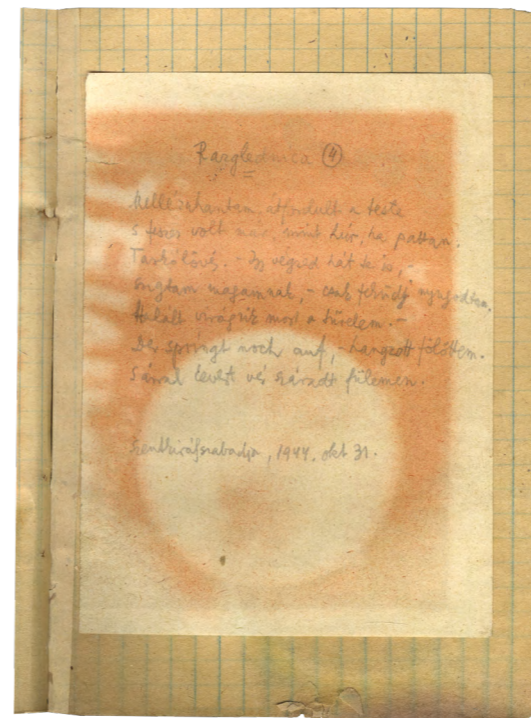 Razglednica (4)
Mellézuhantam, átfordult a teste
s feszes volt már, mint húr, ha pattan.
Tarkólövés. - Így végzed hát te is, -
súgtam magamnak, - csak feküdj nyugodtan.
Halált virágzik most a türelem. -
Der springt noch auf, - hangzott fölöttem.
Sárral kevert vér száradt fülemen.
Szentkirályszabadja, 1944. okt 31.